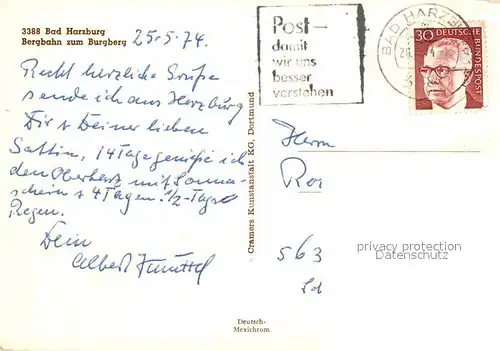 3388 Bad Harzburg
Bergbahn zum Burgberg
25.5.74.
Recht herzliche Grüße
sende ich aus Harzburg
Dir & Deiner lieben
Gattin, 14 Tage genieße ich
den Oberharz mit Sonnen-
schein & 4 Tagen 1/2-Tags
Regen.
Dein
Albert
Cramers Kunstanstalt KG, Dortmund
Post-
damit
wir uns
besser
verstehen
BAD HARZBURG
30 DEUTSCHE BUNDESPOST
Herrn
Ro
563
privacy protection
Datenschutz
Deutsch-
Mexichrom